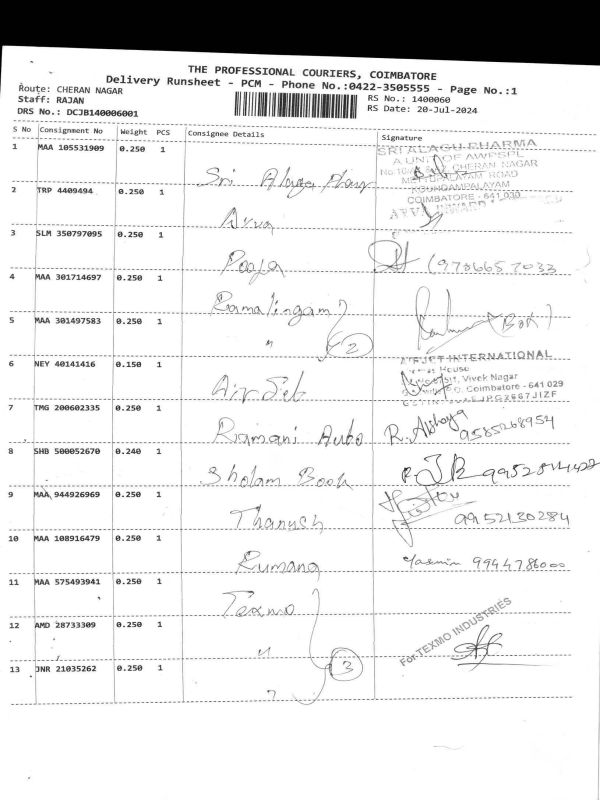 THE PROFESSIONAL COURIERS, COIMBATORE
Delivery Runsheet - PCM - Phone No.:0422-3505555 - Page No.:1
Route: CHERAN NAGAR
Staff: RAJAN
DRS No.: DCJB140006001
RS No.: 1400060
RS Date: 20-Jul-2024
S No Consignment No Weight PCS Consignee Details Signature
1 MAA 105531909 0.250 1
SRI ALAGU PHARMA
A UNIT OF AWPSPL
CHERAN NAGAR
METTUPALAYAM ROAD
KOUNDAMPALAYAM
COIMBATORE - 641 030
2 TRP 4409494 0.250 1
3 SLM 350797095 0.250 1 Pooja
4 MAA 301714697 0.250 1 Ramalingam
5 MAA 301497583 0.250 1 " 2
6 NEY 40141416 0.150 1
INTERNATIONAL
House
Vivek Nagar
Coimbatore - 641 029
7 TMG 200602335 0.250 1 Ramani Auto R. Abhaya 9585268954
8 SHB 500052670 0.240 1 Sholam Book
9 MAA 944926969 0.250 1 Thanush 9952130284
10 MAA 108916479 0.250 1 Yasmin 9944786000
11 MAA 575493941 0.250 1 Texmo
12 AMD 28733309 0.250 1 "
For TEXMO INDUSTRIES
13 JNR 21035262 0.250 1 " 3